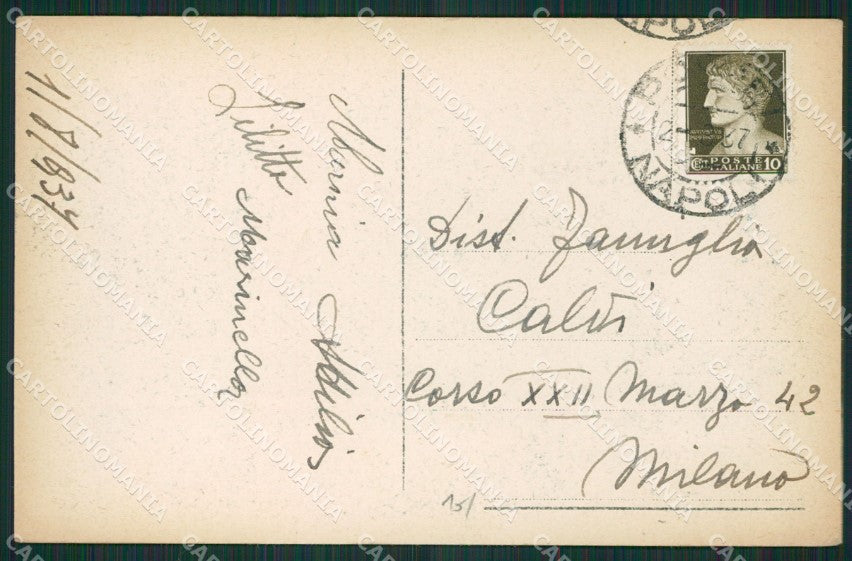 NAPOLI
NAPOLI
POSTE
ITALIANE 10
1/8/937
Lilitta
Marinella
Dist. Famiglia
Calvi
Corso XXII Marzo 42
Milano
15/
CARTOLINOMANIA